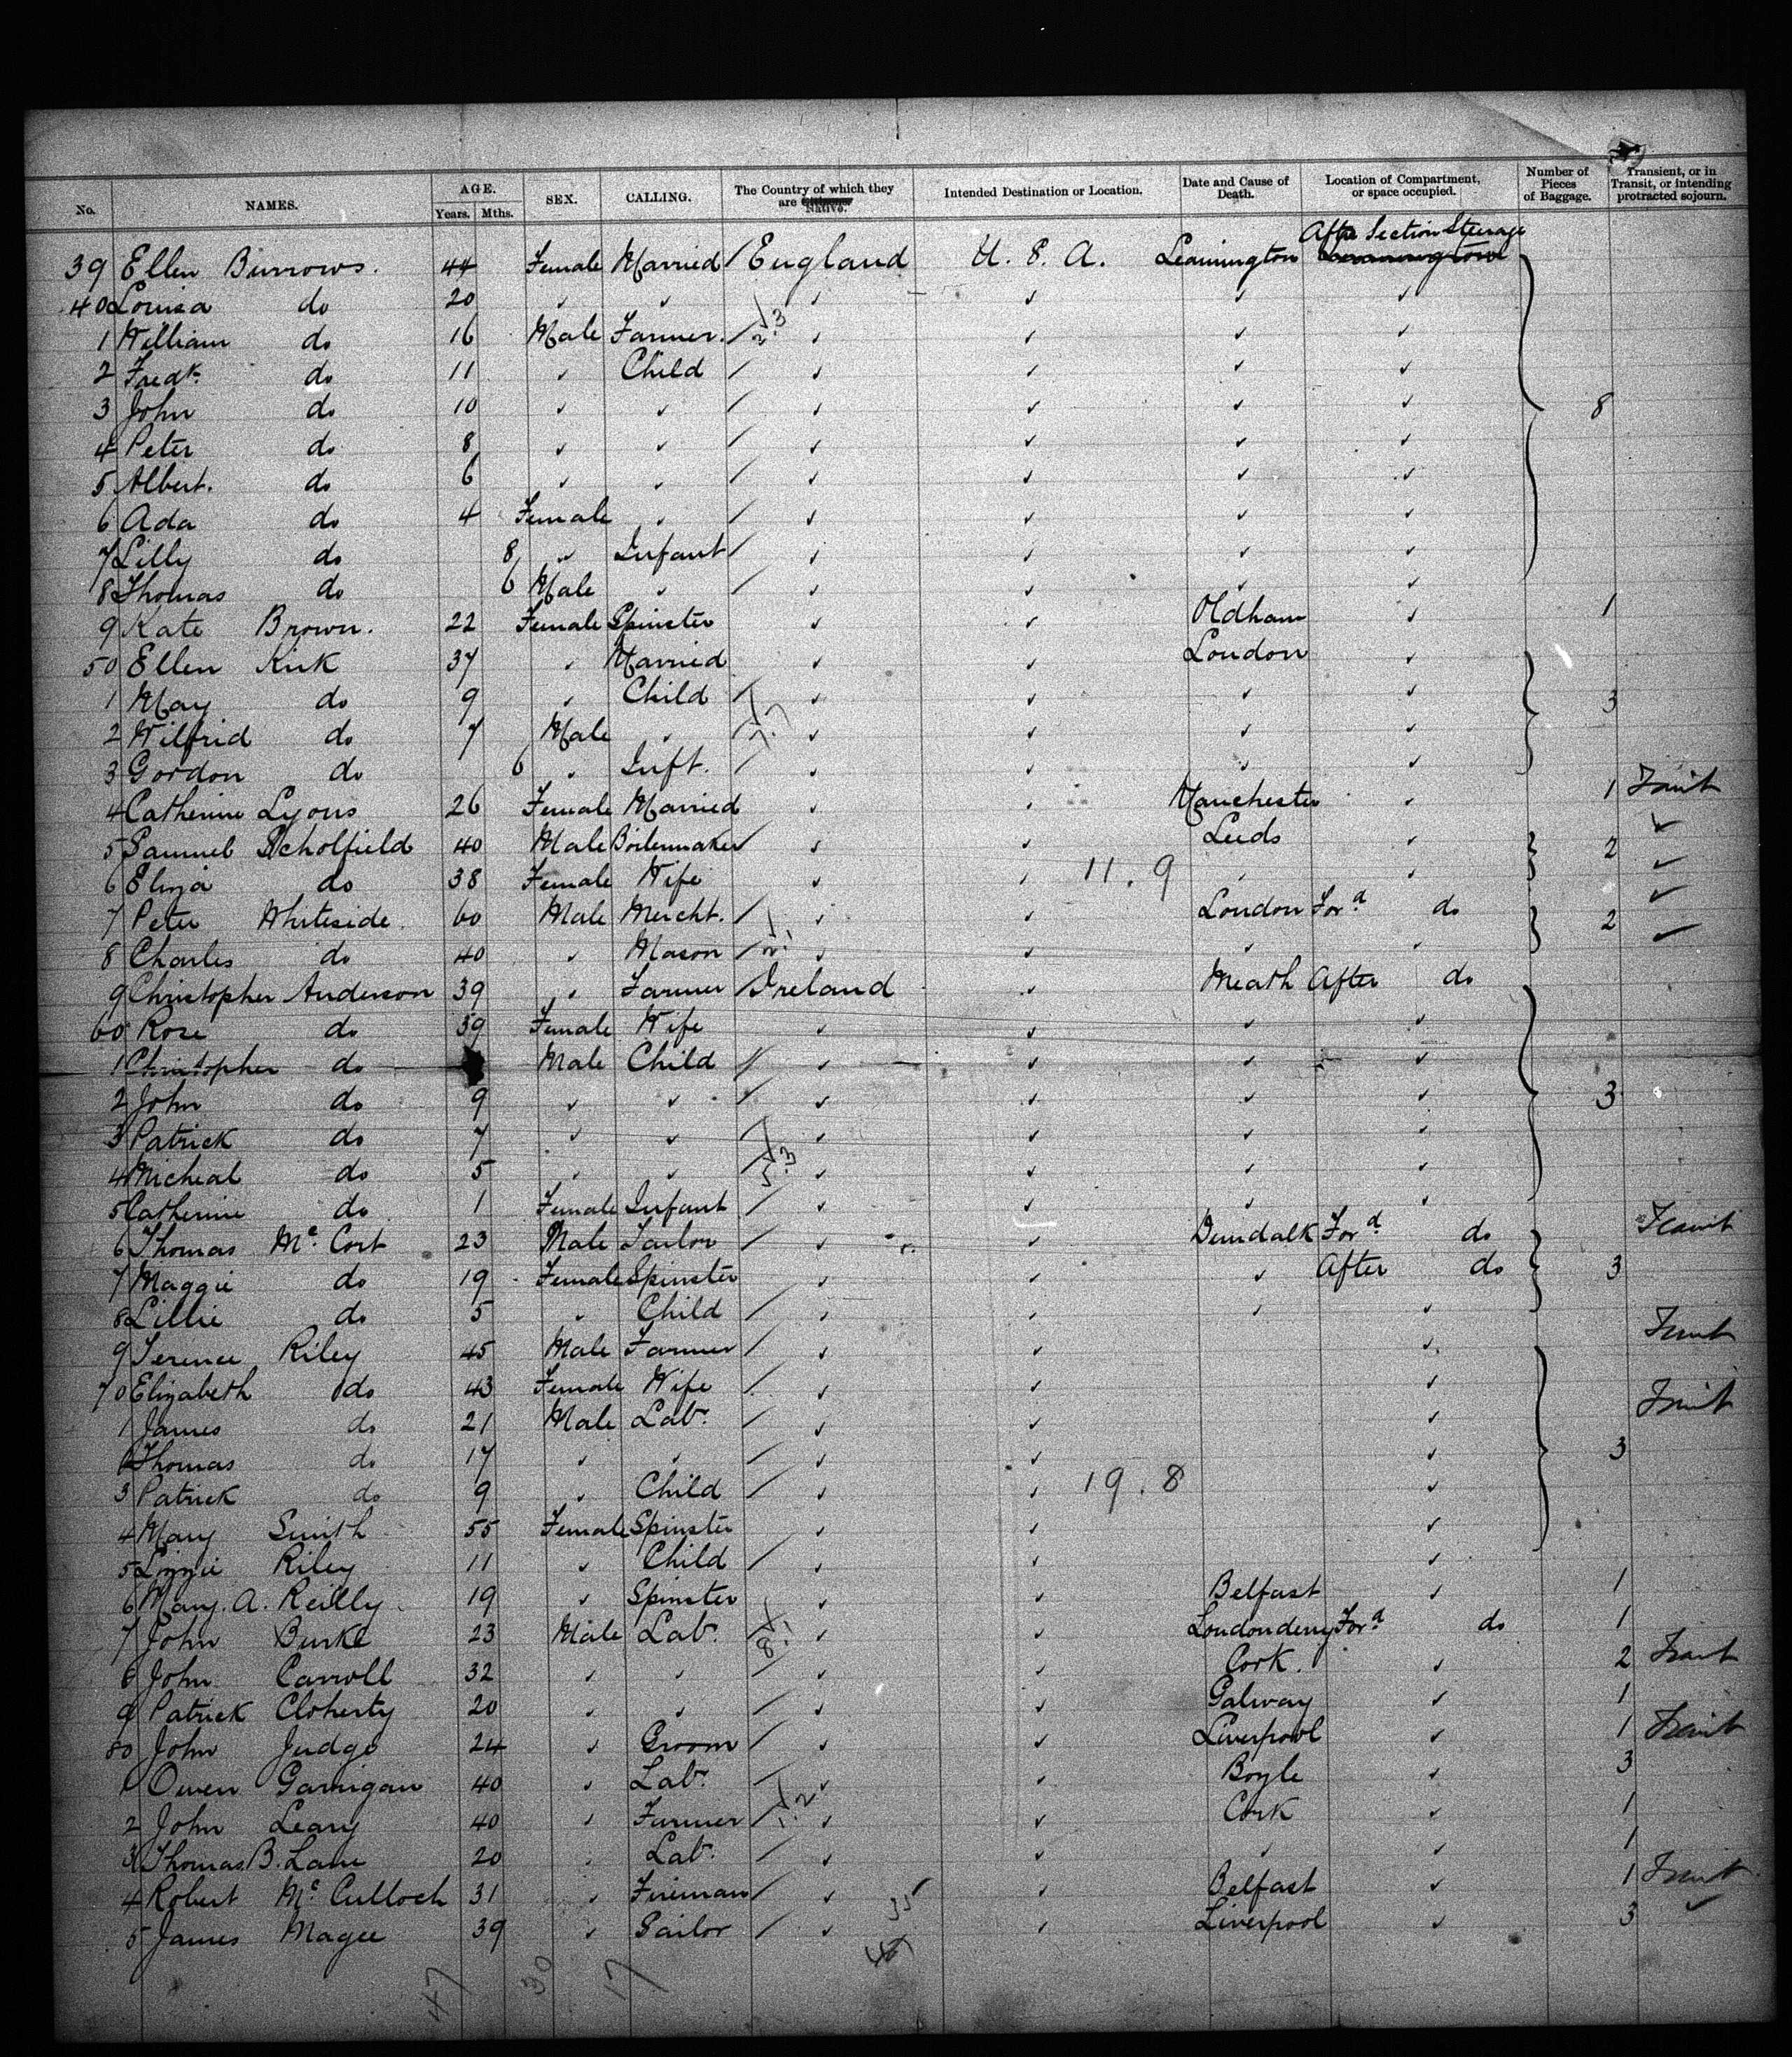 No. NAMES. AGE. Years. Mths. SEX. CALLING. The Country of which they are Citizens Native. Intended Destination or Location. Date and Cause of Death. Location of Compartment, or space occupied. Number of Pieces of Baggage. Transient, or in Transit, or intending protracted sojourn.
39 Ellen Burrows. 44 Female Married / England U. S. A. Leamington After Section Steerage
40 Louisa do 20 ✓ ✓ ✓ ✓ ✓ ✓
1 William do 16 Male Farmer. / 2.3 ✓ ✓ ✓ ✓
2 Fredk. do 11 ✓ Child / ✓ ✓ ✓ ✓
3 John do 10 ✓ ✓ / ✓ ✓ ✓ ✓ 8
4 Peter do 8 ✓ ✓ / ✓ ✓ ✓ ✓
5 Albert. do 6 ✓ ✓ / ✓ ✓ ✓ ✓
6 Ada do 4 Female ✓ / ✓ ✓ ✓ ✓
7 Lilly do 8 ✓ Infant / ✓ ✓ ✓ ✓
8 Thomas do 6 Male ✓ / ✓ ✓ ✓ ✓
9 Kate Brown. 22 Female Spinster ✓ ✓ Oldham ✓ 1
50 Ellen Kirk 37 ✓ Married ✓ ✓ London ✓
1 May do 9 ✓ Child / ✓ ✓ ✓ ✓ 3
2 Wilfrid do 7 Male ✓ / ✓ ✓ ✓ ✓
3 Gordon do 6 ✓ Inft. / ✓ ✓ ✓ ✓
4 Catherine Lyons 26 Female Married ✓ ✓ Manchester ✓ 1 Transit
5 Samuel Scholfield 40 Male Boilermaker / ✓ ✓ Leeds ✓ 2 ✓
6 Eliza do 38 Female Wife ✓ ✓ 11.9 ✓ ✓ ✓
7 Peter Whiteside. 60 Male Mercht. / ✓ ✓ London Ford do 2 ✓
8 Charles do 40 ✓ Mason / ✓ ✓ ✓ ✓ ✓
9 Christopher Anderson 39 ✓ Farmer / Ireland ✓ Meath After do
60 Rose do 39 Female Wife ✓ ✓ ✓ ✓
1 Christopher do Male Child / ✓ ✓ ✓ ✓
2 John do 9 ✓ ✓ / ✓ ✓ ✓ ✓ 3
3 Patrick do 7 ✓ ✓ / ✓ ✓ ✓ ✓
4 Micheal do 5 ✓ ✓ / 5.3 ✓ ✓ ✓ ✓
5 Catherine do 1 Female Infant / ✓ ✓ ✓ ✓
6 Thomas Mc. Cort 23 Male Tailor / ✓ ✓ Dundalk Ford do Transit
7 Maggie do 19 Female Spinster ✓ ✓ ✓ After do 3
8 Lillie do 5 ✓ Child / ✓ ✓ ✓ ✓
9 Terence Riley 45 Male Farmer / ✓ ✓ ✓ Transit
70 Elizabeth do 43 Female Wife / ✓ ✓ ✓
1 James do 21 Male Labr. / ✓ ✓ ✓ Transit
Thomas do 17 ✓ ✓ / ✓ ✓ ✓ 3
3 Patrick do 9 ✓ Child / ✓ ✓ 19.8 ✓
4 Mary Smith 55 Female Spinster ✓ ✓ ✓
5 Lizzie Riley 11 ✓ Child / ✓ ✓ ✓
6 Mary. A. Reilly. 19 ✓ Spinster ✓ ✓ Belfast ✓ 1
7 John Burke 23 Male Labr. / 8.1 ✓ ✓ Londonderry Ford do 1
John Carroll 32 ✓ ✓ / ✓ ✓ Cork. ✓ 2 Transit
9 Patrick Cloherty 20 ✓ ✓ / ✓ ✓ Galway ✓ 1
80 John Judge 24 ✓ Groom / ✓ ✓ Liverpool ✓ 1 Transit
1 Owen Garrigan 40 ✓ Labr. / ✓ ✓ Boyle ✓ 3
2 John Leary 40 ✓ Farmer / 1.2 ✓ ✓ Cork ✓ 1
3 Thomas B. Lane 20 ✓ Labr. / ✓ ✓ ✓ ✓ 1
4 Robert Mc. Culloch 31 ✓ Fireman / ✓ ✓ Belfast ✓ 1 Transit
5 James Magee 39 ✓ Sailor / ✓ ✓ Liverpool ✓ 3 ✓
47 30 17